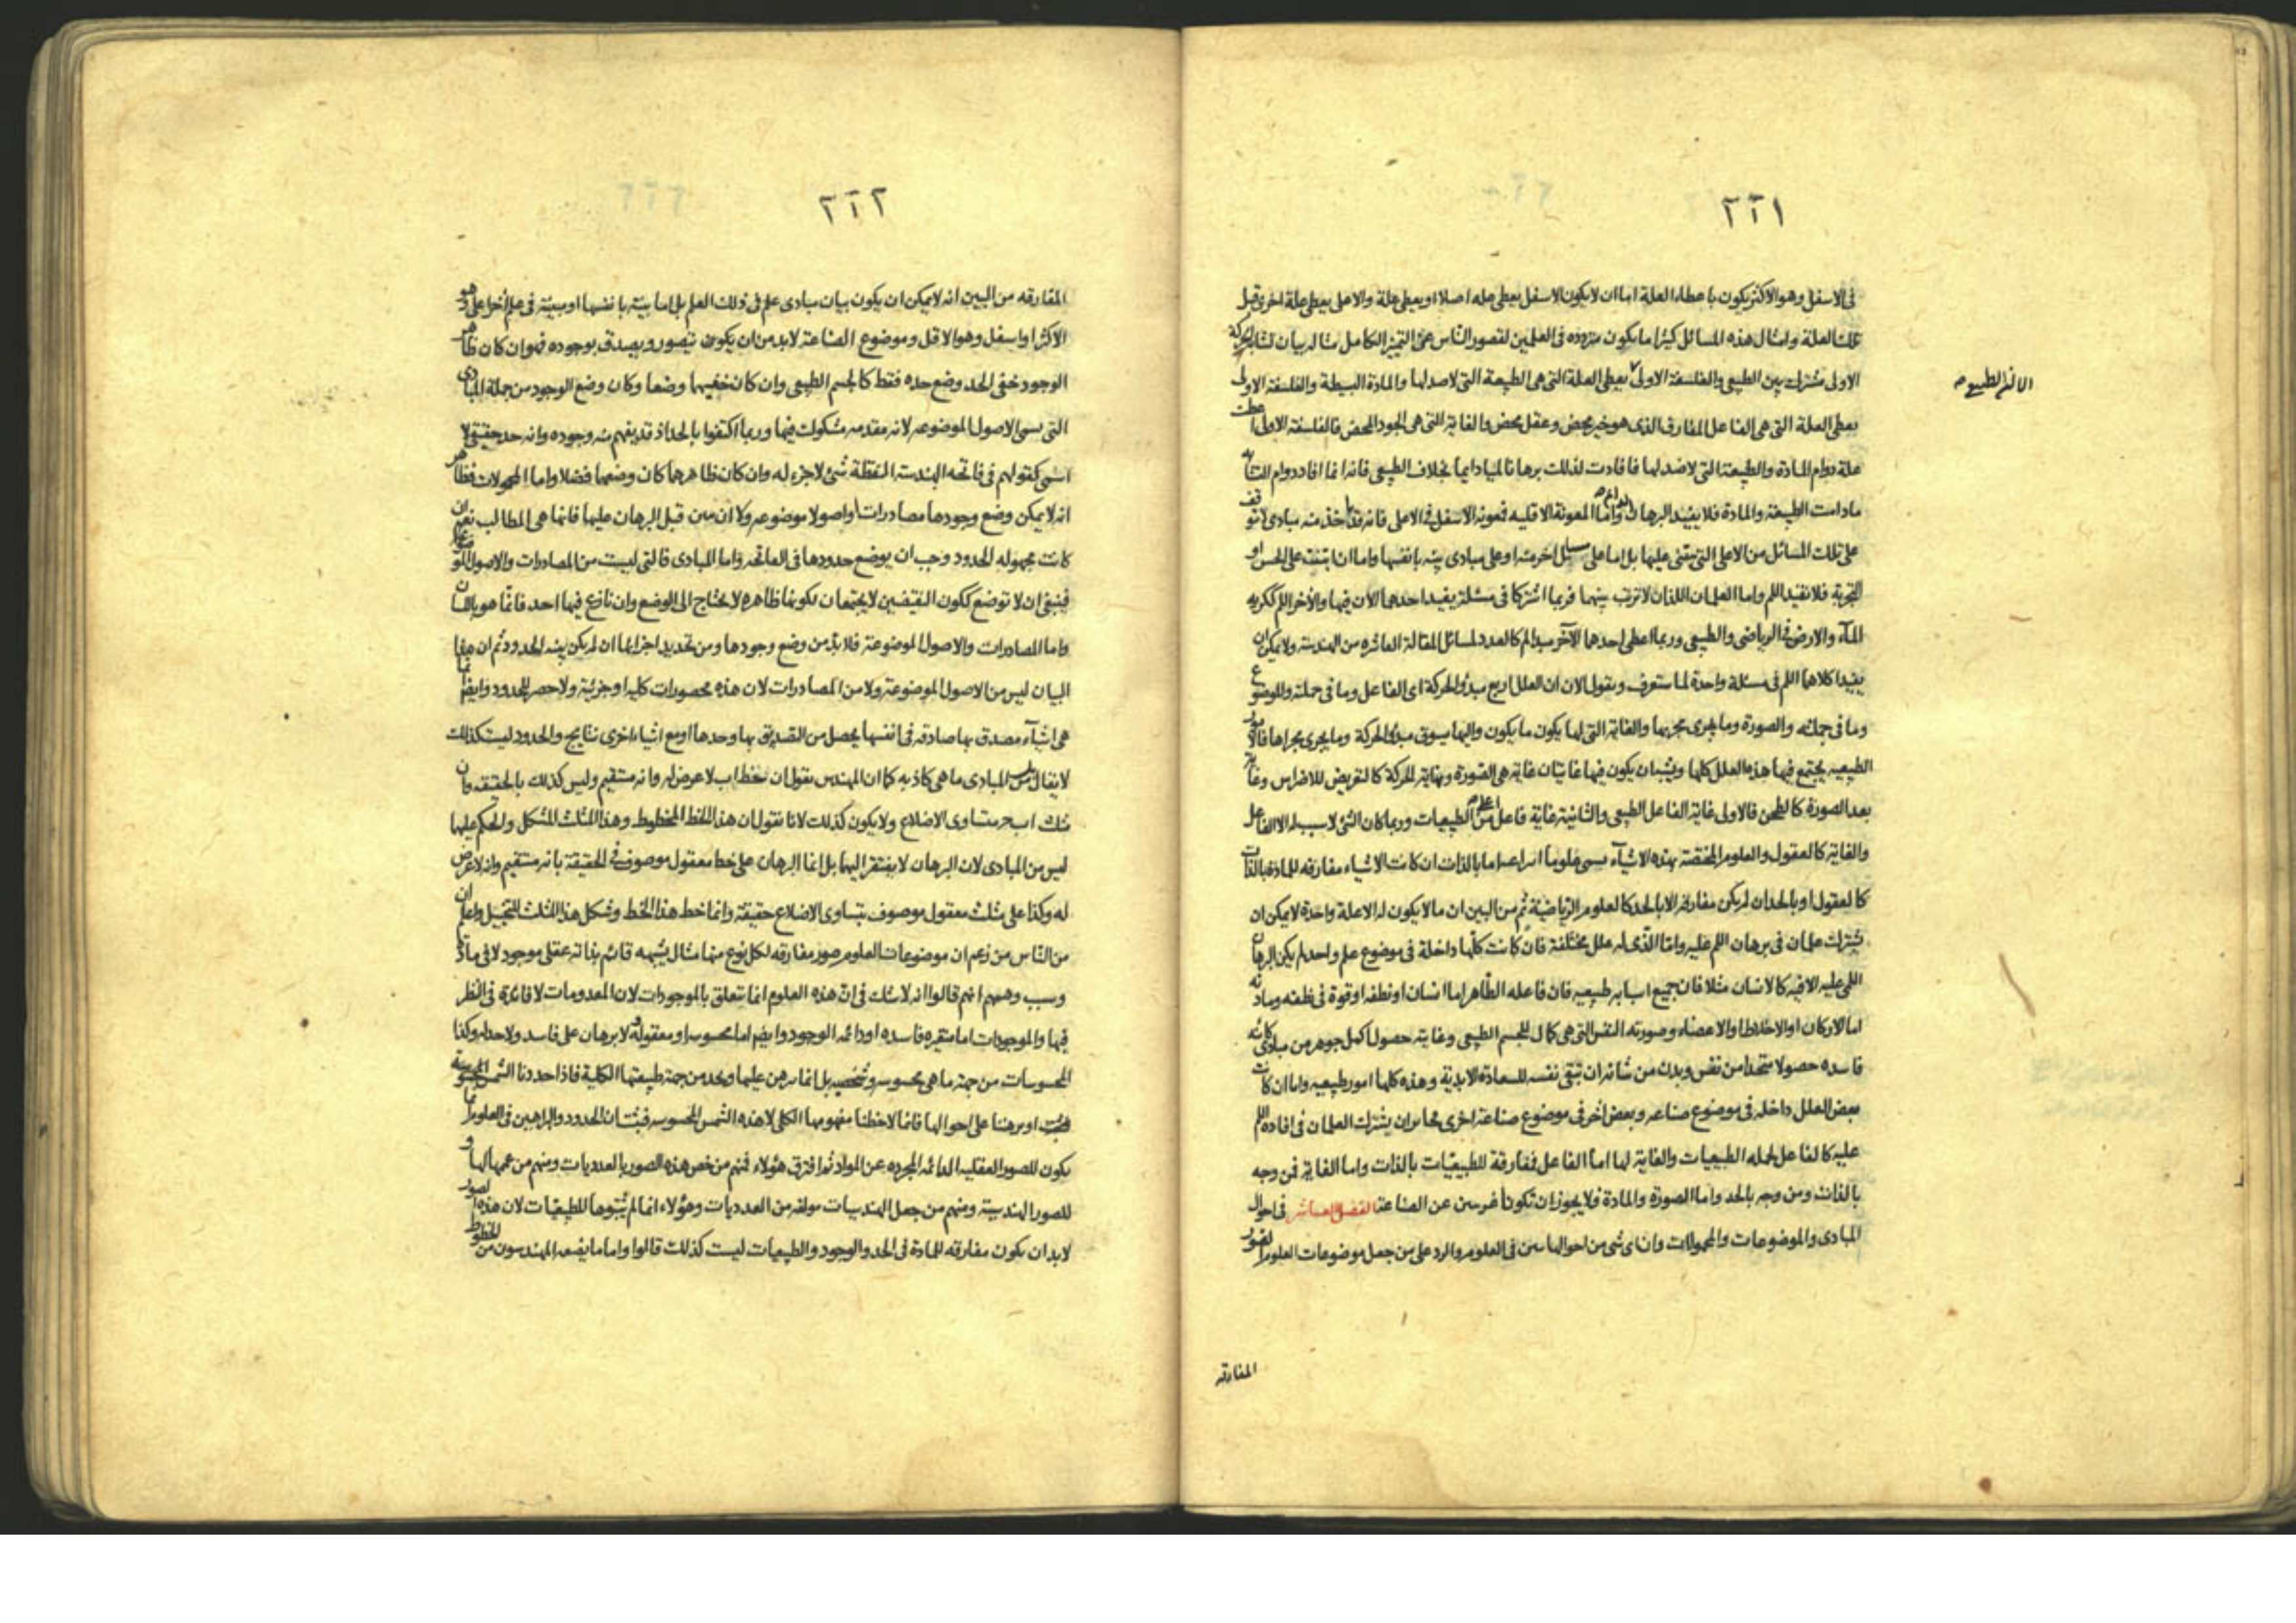 ٢٢١
فى الاسفل وهو الاكثر يكون باعطاء العلة اما ان لا يكون الاسفل يعطى علة اصلا او يعطى علة والاعلى يعطى علة اخرى قبل
تلك العلة وامثال هذه المسائل كثيرا ما يكون مترددة فى العلمين لقصور الناس عن التمييز الكامل مثاله بيان تشابه الحركة
الاولى مشترك بين الطبيعى والفلسفة الاولى يعطى العلة التى هى الطبيعة التى لا ضد لها والمادة البسيطة والفلسفة الاولى
الا ان الطبيعى
يعطى العلة التى هى الفاعل المفارق الذى هو خير محض وعقل محض والغاية التى هى الجود المحض فالفلسفة الاولى اعطت
علة دوام المادة والطبيعة التى لا ضد لها فافادت لذلك برهانا لميا دايما بخلاف الطبيعى فانه انما افاد دوام التشابه
مادامت الطبيعة والمادة فلا يفيد البرهان الدائم واما المعونة الاقليه فمعونة الاسفل فى الاعلى فانه قد تاخذ منه مبادى لا توقف
على تلك المسائل من الاعلى التى يبتنى عليها بل اما على مسايل اخر منه او على مبادى بينه بانفسها واما ان ابتنت على الحس او
التجربة فلا تفيد اللم واما العلمان اللذان لا ترتب بينهما فربما اشتركا فى مسئلة يفيد احدهما الان فيها والآخر اللم ككرية
المآء والارض فى الرياضى والطبيعى وربما اعطى احدهما الآخر مبدا لم كالعدد لمسائل المقالة العاشره من الهندسة ولا يمكن ان
يفيدا كلاهما اللم فى مسئلة واحدة لما ستعرف ونقول الان ان العلل اربع مبدؤ الحركة اى الفاعل وما فى جملته والموضوع
وما فى جملته والصورة وما يجرى مجريها والغاية التى لها يكون ما يكون واليها يسوق مبدؤ الحركة وما يجرى مجراها فالامور
الطبيعيه يجتمع فيها هذه العلل كلها ويشبه ان يكون فيها غايتان غاية هى الصورة ونهاية الحركة كالتعريض للاضراس وغاية
بعد الصورة كالطحن فالاولى غاية الفاعل الطبيعى والثانية غاية فاعل اعلى من الطبيعيات وربما كان الشئ لا سبب له الا الفاعل
والغاية كالعقول والعلوم المختصة بهذه الاشيآء يسمى علوما اما بالذات ان كانت الاشياء مفارقه للمادة بالذات
كالعقول او بالحد ان لم يكن مفارقة الا بالحد كالعلوم الرياضية ثم من البين ان ما لا يكون له الا علة واحدة لا يمكن ان
يشترك علمان فى برهان اللم عليه واما الذى له علل مختلفة فان كانت كلها داخلة فى موضوع علم واحد لم يكن البرهان
اللمى عليه الا فيه كالانسان مثلا فان جميع اسبابه طبيعيه فان فاعله الظاهر اما انسان او نطفه او قوة فى نطفه ومادته
اما الاركان او الاخلاط او الاعضاء وصورته النفس التى هى كمال للجسم الطبيعى وغايته حصول اكمل جوهر من مبادى كائنه
فاسده حصولا متحدا من نفس وبدن من شانه ان تبقى نفسه للسعادة الابدية وهذه كلها امور طبيعيه واما ان كانت
بعض العلل داخله فى موضوع صناعه وبعض اخر فى موضوع صناعة اخرى فجاز ان يشترك العلمان فى افاده اللم
عليه كالفاعل لجمله الطبيعيات والغاية لها اما الفاعل فمفارقة للطبيعيّات بالذات واما الغاية فمن وجه
بالذات ومن وجه بالحد واما الصورة والمادة فلا يجوز ان تكونا غريبين عن الصناعة الفصل العاشر فى احوال
المبادى والموضوعات والمحمولات وان اى شئ من احوالها يبين فى العلوم والرد على من جعل موضوعات العلوم الصور
المفارقه
٢٢٢
المفارقه من البين انه لا يمكن ان يكون بيان مبادى علم فى ذلك العلم بل اما بينه بانفسها او مبينة فى علم اخر اعلى وهو
الاكثر او اسفل وهو الاقل وموضوع الصناعة لابد من ان يكون يتصور ويصدق بوجوده فهو ان كان ظاهر
الوجود خفى الحد وضع حده فقط كالجسم الطبيعى وان كان خفيهما وضعا وكان وضع الوجود من جملة المبادى
التى سمى الاصول الموضوعه لانه مقدمه مشكوك فيها وربما اكتفوا بالحد اذ قد يفهم منه وجوده وانه حد حقيقى لا
اسمى كقولهم فى فاتحة الهندسة النقطة شئ لا جزء له وان كان ظاهرهما كان وضعهما فضلا واما المحمولات فظاهر
انه لا يمكن وضع وجودها مصادرات او اصولا موضوعه ولا ان تبين قبل البرهان عليها فانما هى المطالب نعم ان
كانت مجهوله الحدود وجب ان يوضع حدودها فى الفاتحة واما المبادى فالتى ليست من المصادرات والاصول الموضوعة
فينبغى ان لا توضع ككون النقيضين لا يجتمعان لكونها ظاهره لا يحتاج الى الوضع وان نازع فيها احد فانما هو باللسان
واما المصادرات والاصول الموضوعة فلا بد من وضع وجودها ومن تحديد اجزائها ان لم يكن بينه الحدود ثم ان هذا
البيان ليس من الاصول الموضوعة ولا من المصادرات لان هذه محصورات كلية او جزئية ولا حصر للحدود وايضا انما
هى اشيآء مصدق بها صادقه فى انفسها يحصل من التصديق بها وحدها او مع اشياء اخرى نتايج والحدود ليست كذلك
لا يقال من المبادى ما هى كاذبه كما ان المهندس يقول ان خط اب لا عرض له وانه مستقيم وليس كذلك بالحقيقه وان
مثلث ابجـ متساوى الاضلاع ولا يكون كذلك لانا نقول ان هذا الخط المخطوط وهذا المثلث المشكل والحكم عليها
ليس من المبادى لان البرهان لا يفتقر اليها بل انما البرهان على خط معقول موصوف فى الحقيقة بانه مستقيم وانه لا عرض
له وكذا على مثلث معقول موصوف بتساوى الاضلاع حقيقة وانما خط هذا الخط وشكل هذا المثلث للتخيل واعلم ان
من الناس من زعم ان موضوعات العلوم صور مفارقه لكل نوع منها مثال يشبهه قائم بذاته عقلى موجود لا فى مادة
وسبب وهمهم انهم قالوا انه لا شك فى ان هذه العلوم انما يتعلق بالموجودات لان المعدومات لا فائدة فى النظر
فيها والموجودات اما متغيره فاسده او دائمه الوجود وايضم اما محسوسه او معقولة ولا برهان على فاسد ولا حد له وكذا
المحسوسات من جهة ما هى محسوسه وشخصيه بل انما يبرهن عليها ويحد من جهة طبيعتها الكلية فاذا حددنا الشمس المحسوسة
او برهنا على احوالها فانما لاحظنا مفهومها الكلى لا هذه الشمس المحسوسه فبقت ان الحدود والبراهين فى العلوم انما
يكون للصور العقليه الدائمه المجرده عن المواد ثم افترق هؤلاء فمنهم من خص هذه الصور بالعدديات ومنهم من عمها لها و
للصور الهندسية ومنهم من جعل الهندسيات مولفه من العدديات وهؤلاء انما لم يثبتوها للطبيعيات لان هذه الصور
لابد ان يكون مفارقه للمادة فى الحد والوجود والطبيعيات ليست كذلك قالوا واما ما يضعه المهندسون من الخطوط